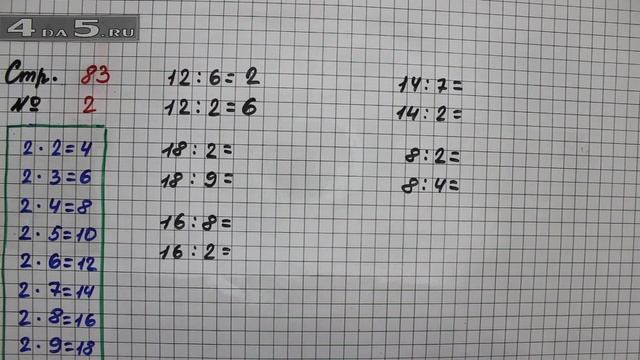 4DA5.RU
Стр. 83
№ 2
2 · 2 = 4
2 · 3 = 6
2 · 4 = 8
2 · 5 = 10
2 · 6 = 12
2 · 7 = 14
2 · 8 = 16
2 · 9 = 18
12 : 6 = 2
12 : 2 = 6
18 : 2 =
18 : 9 =
16 : 8 =
16 : 2 =
14 : 7 =
14 : 2 =
8 : 2 =
8 : 4 =